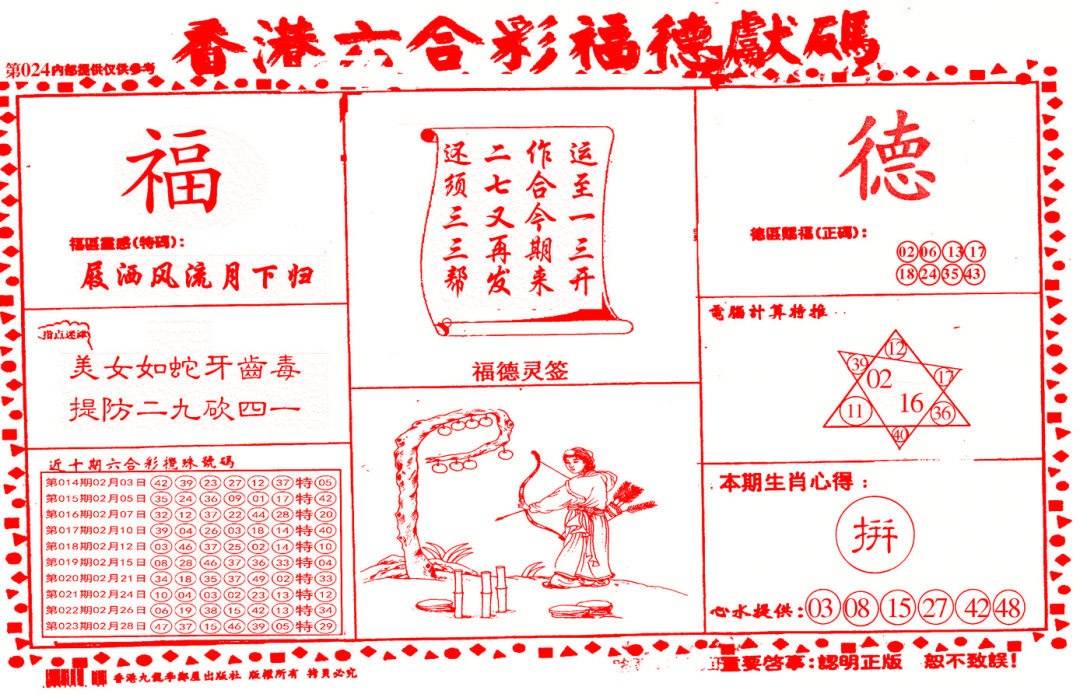 香港六合彩福德獻碼
第024内部提供仅供参考
福
福區靈感(特碼)：
屐洒风流月下归
指点迷津
美女如蛇牙齒毒
提防二九砍四一
近十期六合彩攪珠號碼
第014期02月03日 42 39 23 27 12 37 特 05
第015期02月05日 35 24 36 09 01 17 特 42
第016期02月07日 32 12 37 22 44 28 特 20
第017期02月10日 39 04 26 03 18 14 特 40
第018期02月12日 03 46 37 25 02 14 特 10
第019期02月15日 08 28 46 37 36 33 特 04
第020期02月21日 34 18 35 37 49 02 特 33
第021期02月24日 10 04 03 02 23 13 特 12
第022期02月26日 06 19 38 15 42 13 特 34
第023期02月28日 47 37 15 46 39 05 特 29
运至一三开
作合今期来
二七又再发
还须三三帮
福德灵签
德
德區賜福(正碼)：
02 06 13 17
18 24 35 43
電腦計算特推
12
39 02 17
11 16 36
40
本期生肖心得：
拼
心水提供：03 08 15 27 42 48
香港九龍季鄰屋出版社 版權所有 拷貝必究
重要啓事：認明正版 恕不致誤！